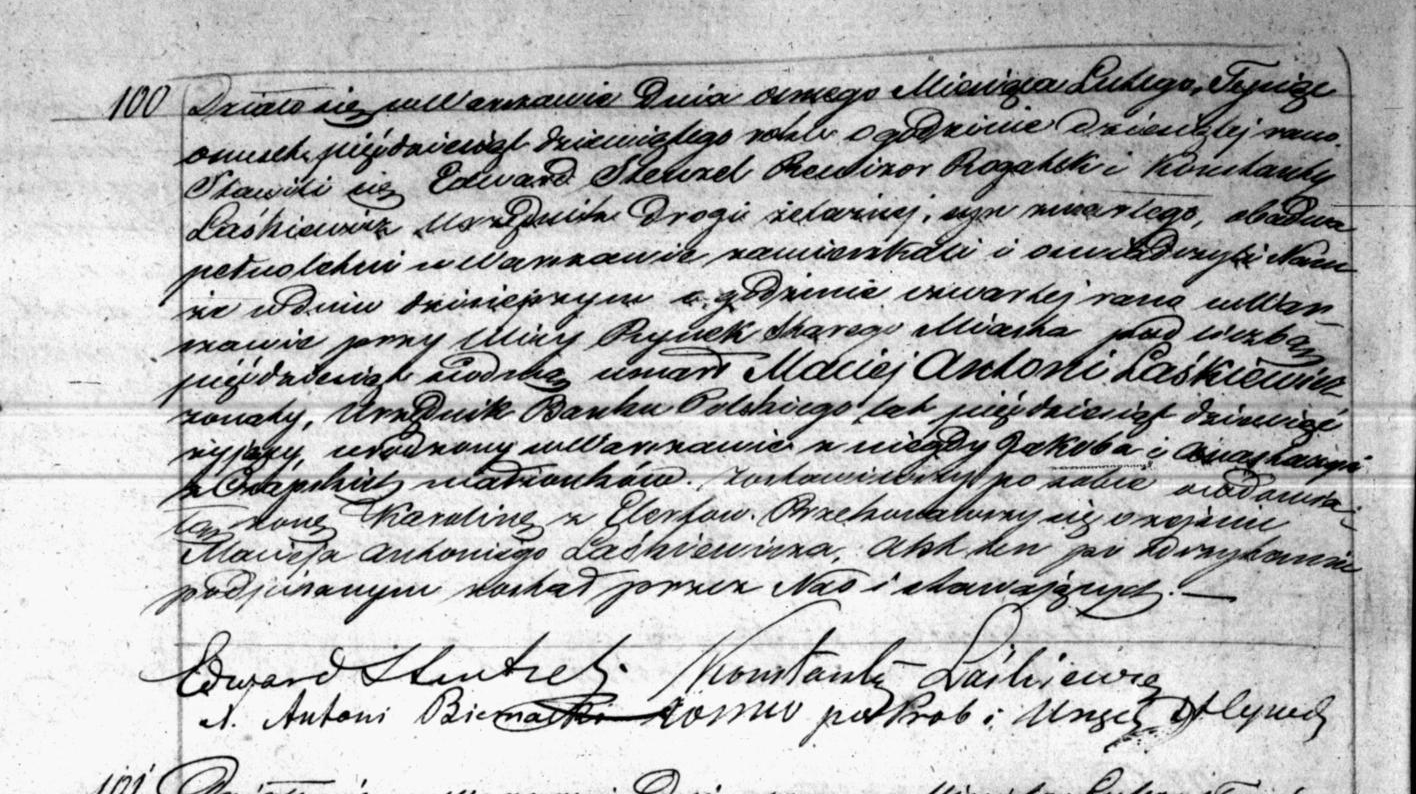 100 Działo się w Warszawie Dnia ósmego Miesiąca Lutego, Tysiąc
ośmset pięćdziesiąt dziewiątego roku o godzinie dziesiątej rano.
Stawili się Edward Stenzel Rewizor Rogatek i Konstanty
Laśkiewicz Urzędnik Drogi żelaznej, syn zmarłego, obadwa
pełnoletni w Warszawie zamieszkali i oświadczyli Nam
że w dniu dzisiejszym o godzinie czwartej rano w War-
szawie przy Ulicy Rynek Starego Miasta pod liczbą
pięćdziesiąt siedm umarł Maciej Antoni Laśkiewicz
żonaty, Urzędnik Banku Polskiego lat pięćdziesiąt dziewięć
żyjący urodzony w Warszawie z niegdy Jakóba i Anastazyi
z małżonków. Zostawiwszy po sobie owdowia-
łą żonę Karolinę z Elertów. Przekonawszy się o zejściu
Macieja Antoniego Laśkiewicza, Akt ten po przeczytaniu
podpisanym został przez Nas i stawających. —
Edward Stentzel. Konstanty Laśkiewicz
X. Antoni Biernacki
101 Działo się w Warszawie Dnia Miesiąca Lutego